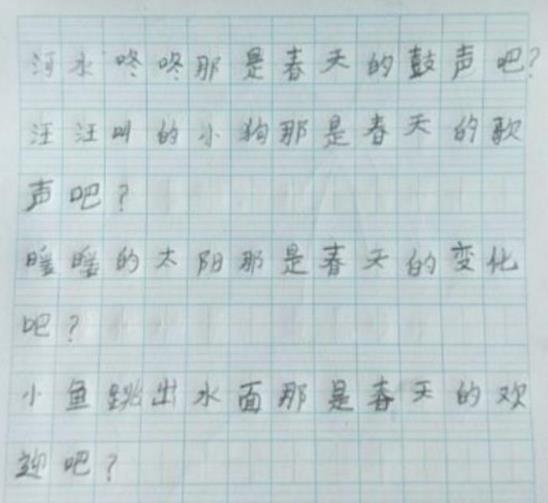 河水咚咚那是春天的鼓声吧?
汪汪叫的小狗那是春天的歌
声吧?
暖暖的太阳那是春天的变化
吧?
小鱼跳出水面那是春天的欢
迎吧?